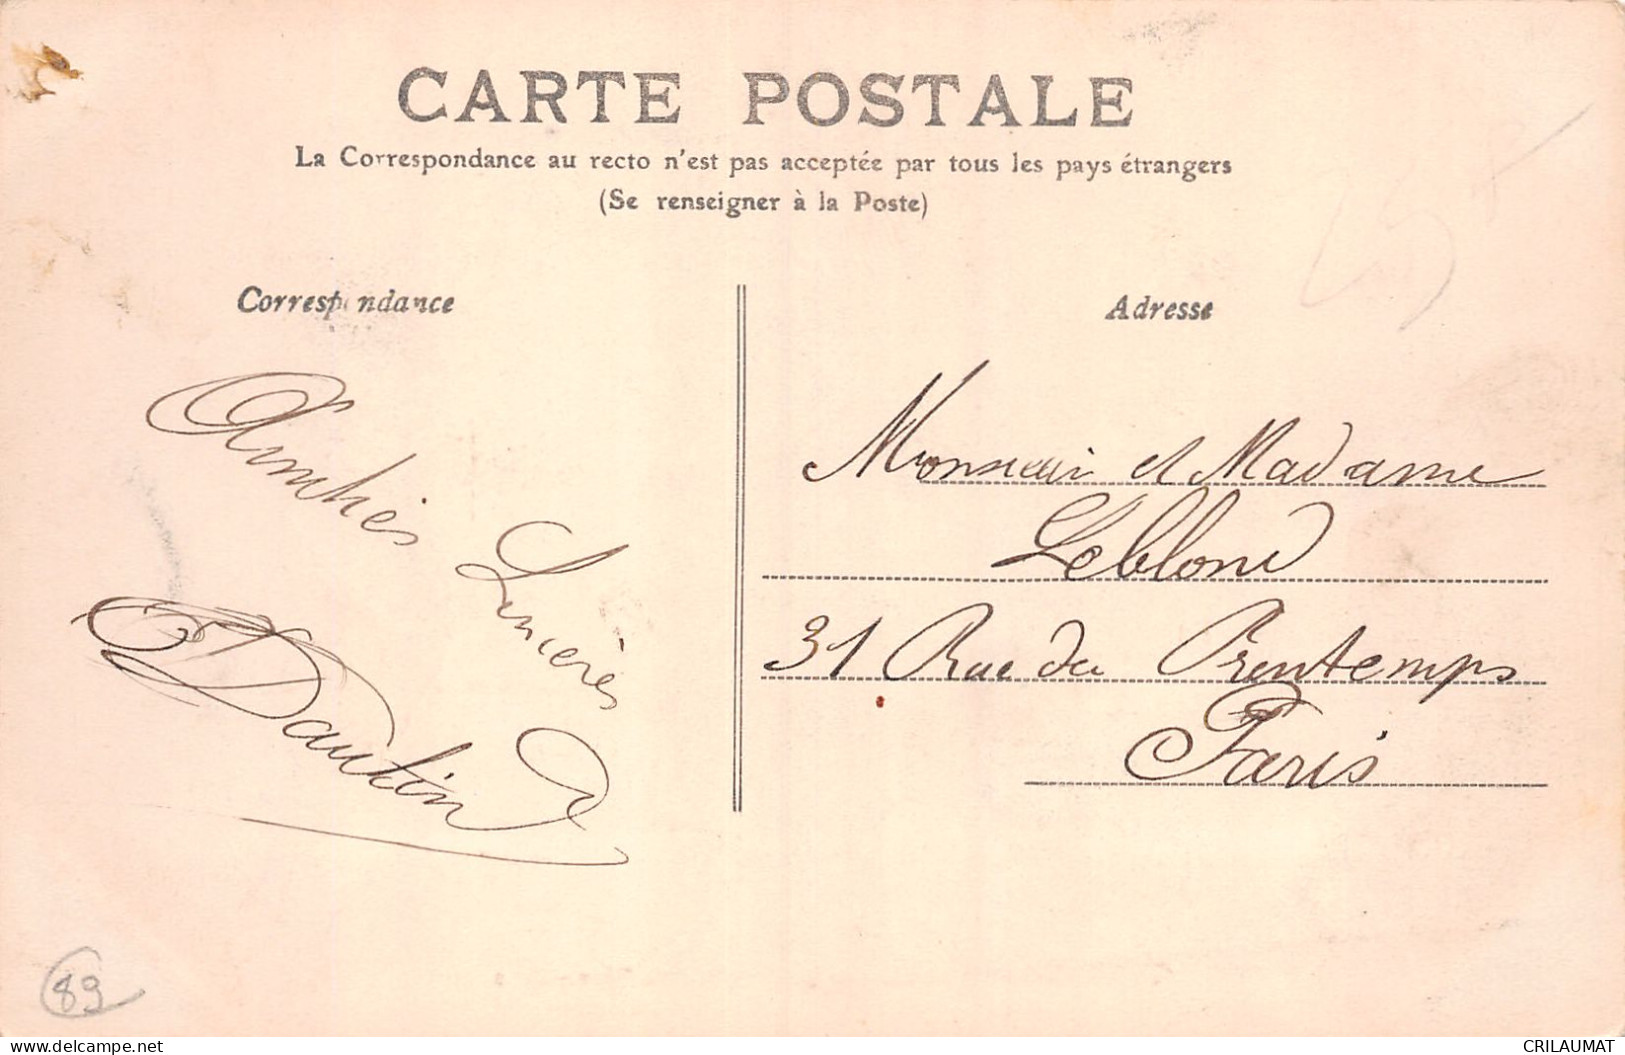 CARTE POSTALE
La Correspondance au recto n'est pas acceptée par tous les pays étrangers
(Se renseigner à la Poste)
Correspondance
Amitiés Sincères
Dautin
Adresse
Monsieur et Madame
Leblond
31 Rue du Printemps
Paris
89
www.delcampe.net
CRILAUMAT